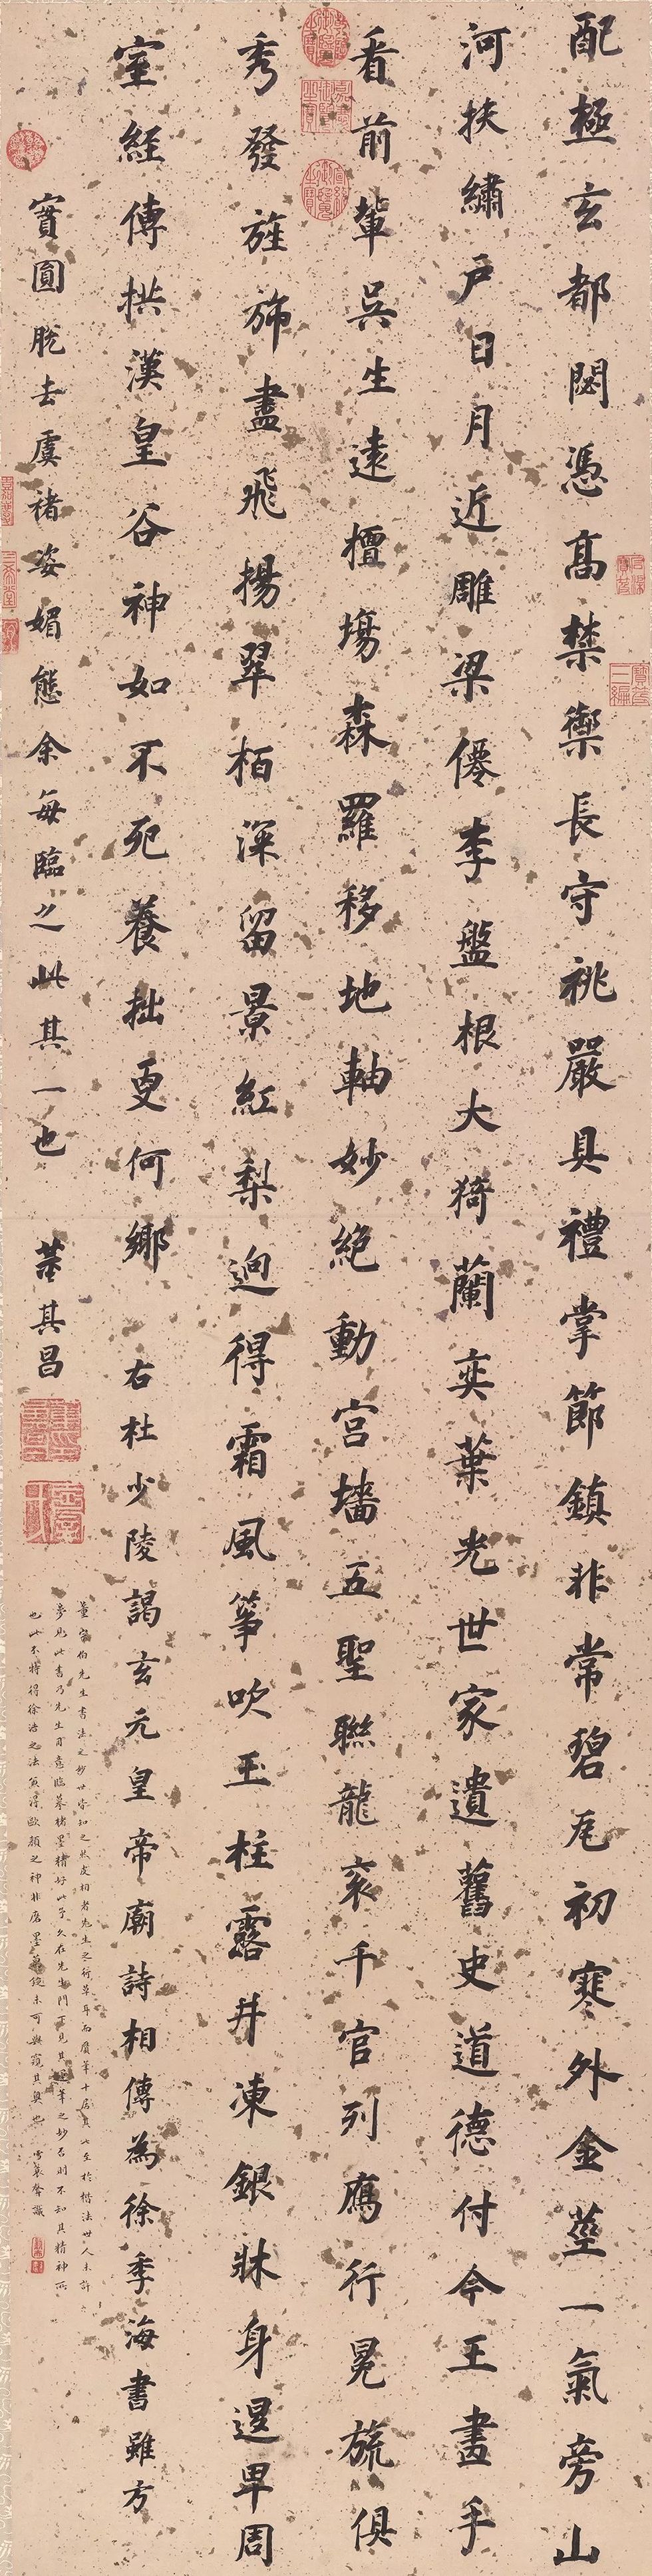 配極玄都閟憑高禁籞長守祧嚴具禮掌節鎮非常碧瓦初寒外金莖一氣旁山
河扶繡戶日月近雕梁僊李盤根大猗蘭奕葉光世家遺舊史道德付今王畫手
看前輩吳生遠擅場森羅移地軸妙絕動宮墻五聖聯龍袞千官列鴈行冕旒俱
秀發旌旆盡飛揚翠栢深留景紅梨迥得霜風箏吹玉柱露井凍銀牀身退卑周
室經傳拱漢皇谷神如不死養拙更何鄉 右杜少陵謁玄元皇帝廟詩相傳為徐季海書雖方
實圓脫去虞褚姿媚態余每臨之此其一也 董其昌
董宗伯先生書法之妙世皆知之然皮相者先生之行草耳而贋筆十居其七至於楷法世人未許
夢見此書乃先生自意臨摹楮墨精好以予久在先生門下見其運筆之妙否則不知其精神所
也此不特得徐浩之法兼得歐顏之神非磨墨萬錠未可與窺其奧也